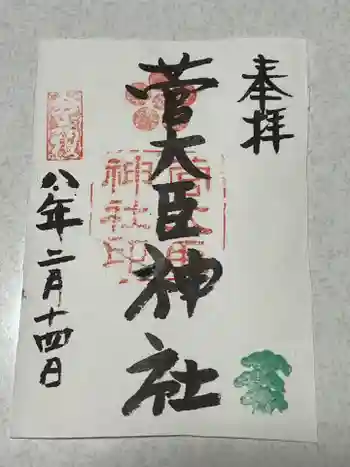 奉拝
菅大臣神社
菅大臣
神社印
八年二月十四日